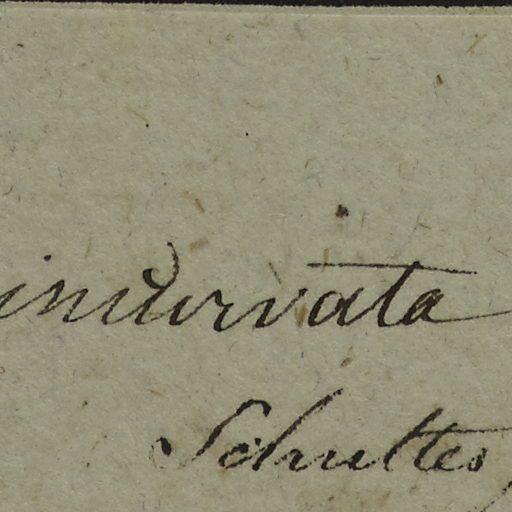 incurvata
Schultes